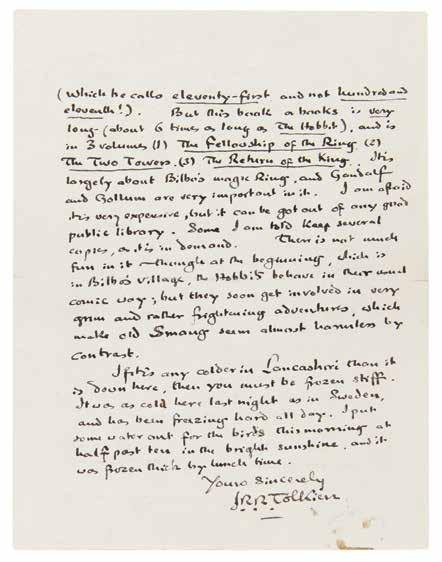 (Which he calls eleventy-first and not hundred and
eleventh!). But this book or books is very
long - (about 6 times as long as The Hobbit), and is
in 3 volumes (1) The Fellowship of the Ring (2)
The Two Towers. (3) The Return of the King. It is
largely about Bilbo's magic Ring, and Gandalf
and Gollum are very important in it. I am afraid
it's very expensive, but it can be got out of any good
public library. Some I am told keep several
copies, as it is in demand. There is not much
fun in it - though at the beginning, which is
in Bilbo's village, the Hobbits behave in their usual
comic way; but they soon get involved in very
grim and rather frightening adventures, which
make old Smaug seem almost harmless by
contrast.
If it is any colder in Lancashire than it
is down here, then you must be frozen stiff.
It was as cold here last night as in Sweden,
and has been freezing hard all day. I put
some water out for the birds this morning at
half past ten in the bright sunshine, and it
was frozen thick by lunch time.
Yours sincerely
J.R.R. Tolkien